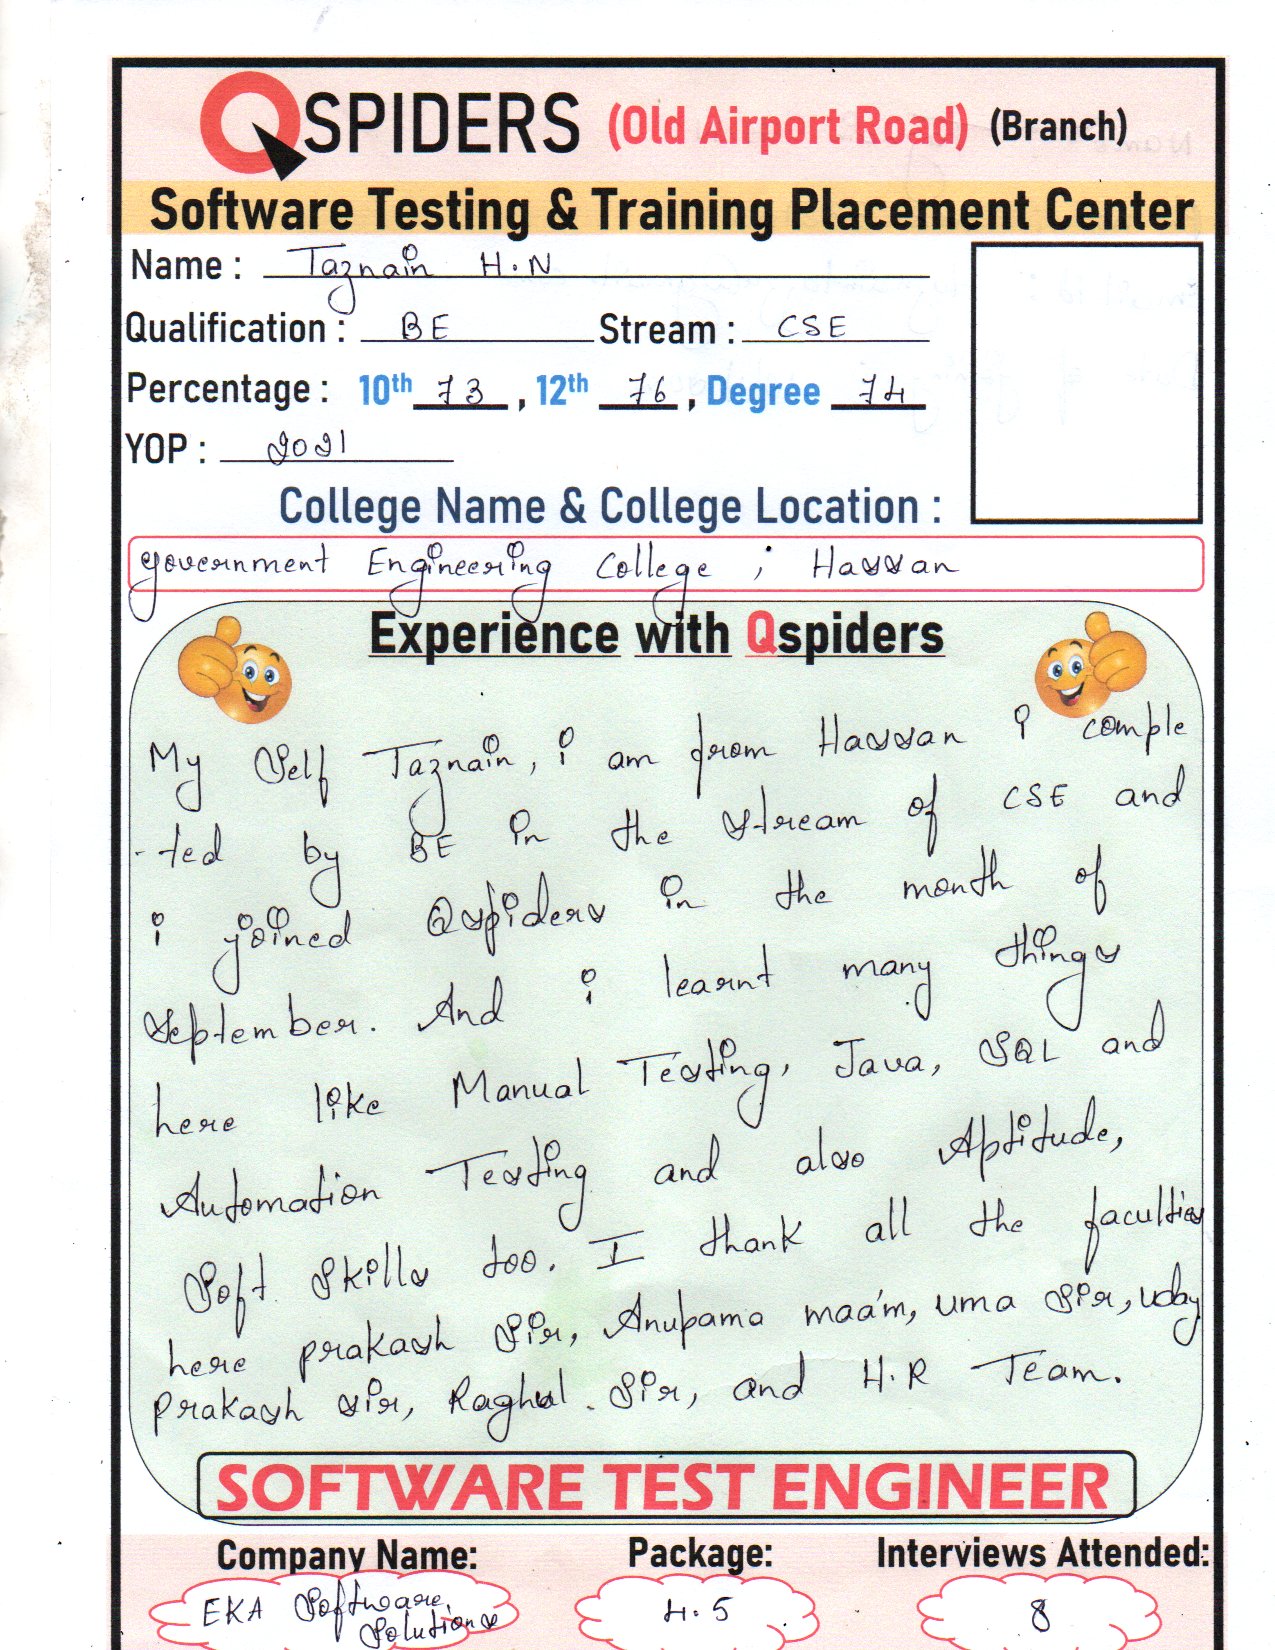 QSPIDERS (Old Airport Road) (Branch)
Software Testing & Training Placement Center
Name : Taznain H.N
Qualification : BE Stream : CSE
Percentage : 10th 73 , 12th 76 , Degree 74
YOP : 2021
College Name & College Location :
government Engineering College ; Hassan
Experience with Qspiders
My Self Taznain, i am from Hassan I comple
-ted by BE in the stream of CSE and
i joined Qspiders in the month of
september. And i learnt many things
here like Manual Testing, Java, SQL and
Automation Testing and also Aptitude,
Soft Skills too. I thank all the faculties
here prakash Sir, Anupama maa'm, uma Sir, uday
prakash sir, Raghul. Sir, and H.R Team.
SOFTWARE TEST ENGINEER
Company Name: Package: Interviews Attended:
EKA Software 4.5 8
Solutions